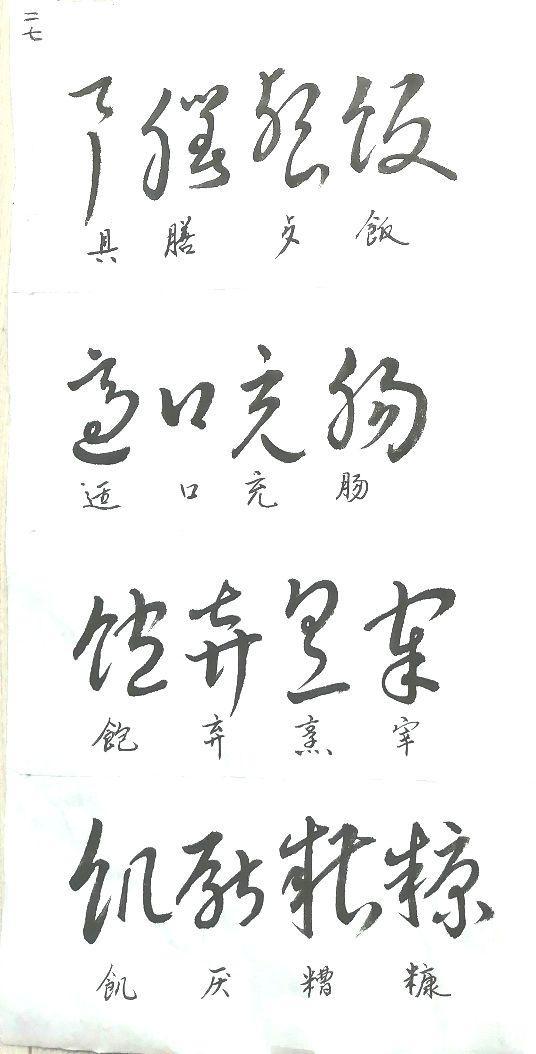 二七
具膳餐飯
具 膳 歺 飯
適口充腸
適 口 充 肠
飽弃烹宰
飽 弃 烹 宰
飢厭糟糠
飢 厌 糟 糠